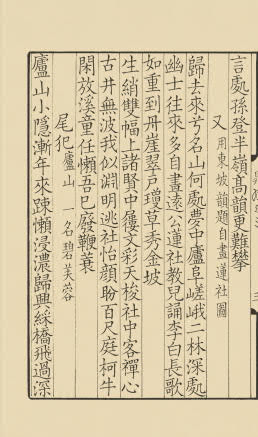 言處孫登半嶺高韻更難攀
又用東坡韻題自畫蓮社圖
歸去來兮名山何處夢中廬阜嵯峨二林深處
幽士往來多自畫遠公蓮社教兒誦李白長歌
如重到丹崖翠戶瓊草秀金坡
生綃雙幅上諸賢中屨文彩天梭社中客禪心
古井無波我似淵明逃社怡顏盼百尺庭柯牛
閑放溪童任懶吾已廢鞭蓑
尾犯廬山一名碧芙蓉
廬山小隱漸年來踈懶浸濃歸興綵橋飛過深